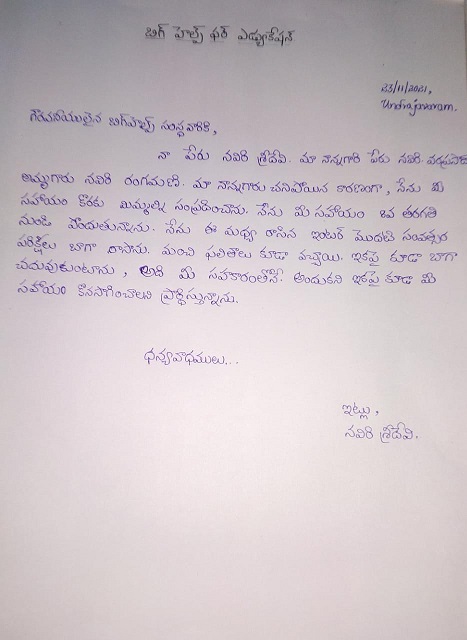 బిగ్ హెల్ప్ ఫర్ ఎడ్యుకేషన్
23/11/2021,
Undrajavaram.
గౌరవనీయులైన బిగ్‌హెల్ప్ సంస్థవారికి,
నా పేరు నవిరి శ్రీదేవి. మా నాన్నగారి పేరు నవిరి
అమ్మగారు నవిరి రంగమణి. మా నాన్నగారు చనిపోయిన కారణంగా, నేను మీ
సహాయం కొరకు మిమ్మల్ని సంప్రదించాను. నేను మీ సహాయం 8వ తరగతి
నుండి పొందుతున్నాను. నేను ఈ మధ్య రాసిన ఇంటర్ మొదటి సంవత్సర
పరీక్షలు బాగా రాసాను. మంచి ఫలితాలు కూడా వచ్చాయి. ఇకపై కూడా బాగా
చదువుకుంటాను, అది మీ సహకారంతోనే. అందుకని ఇకపై కూడా మీ
సహాయం కొనసాగించాలని ప్రార్థిస్తున్నాను.
ధన్యవాధములు...
ఇట్లు,
నవిరి శ్రీదేవి.